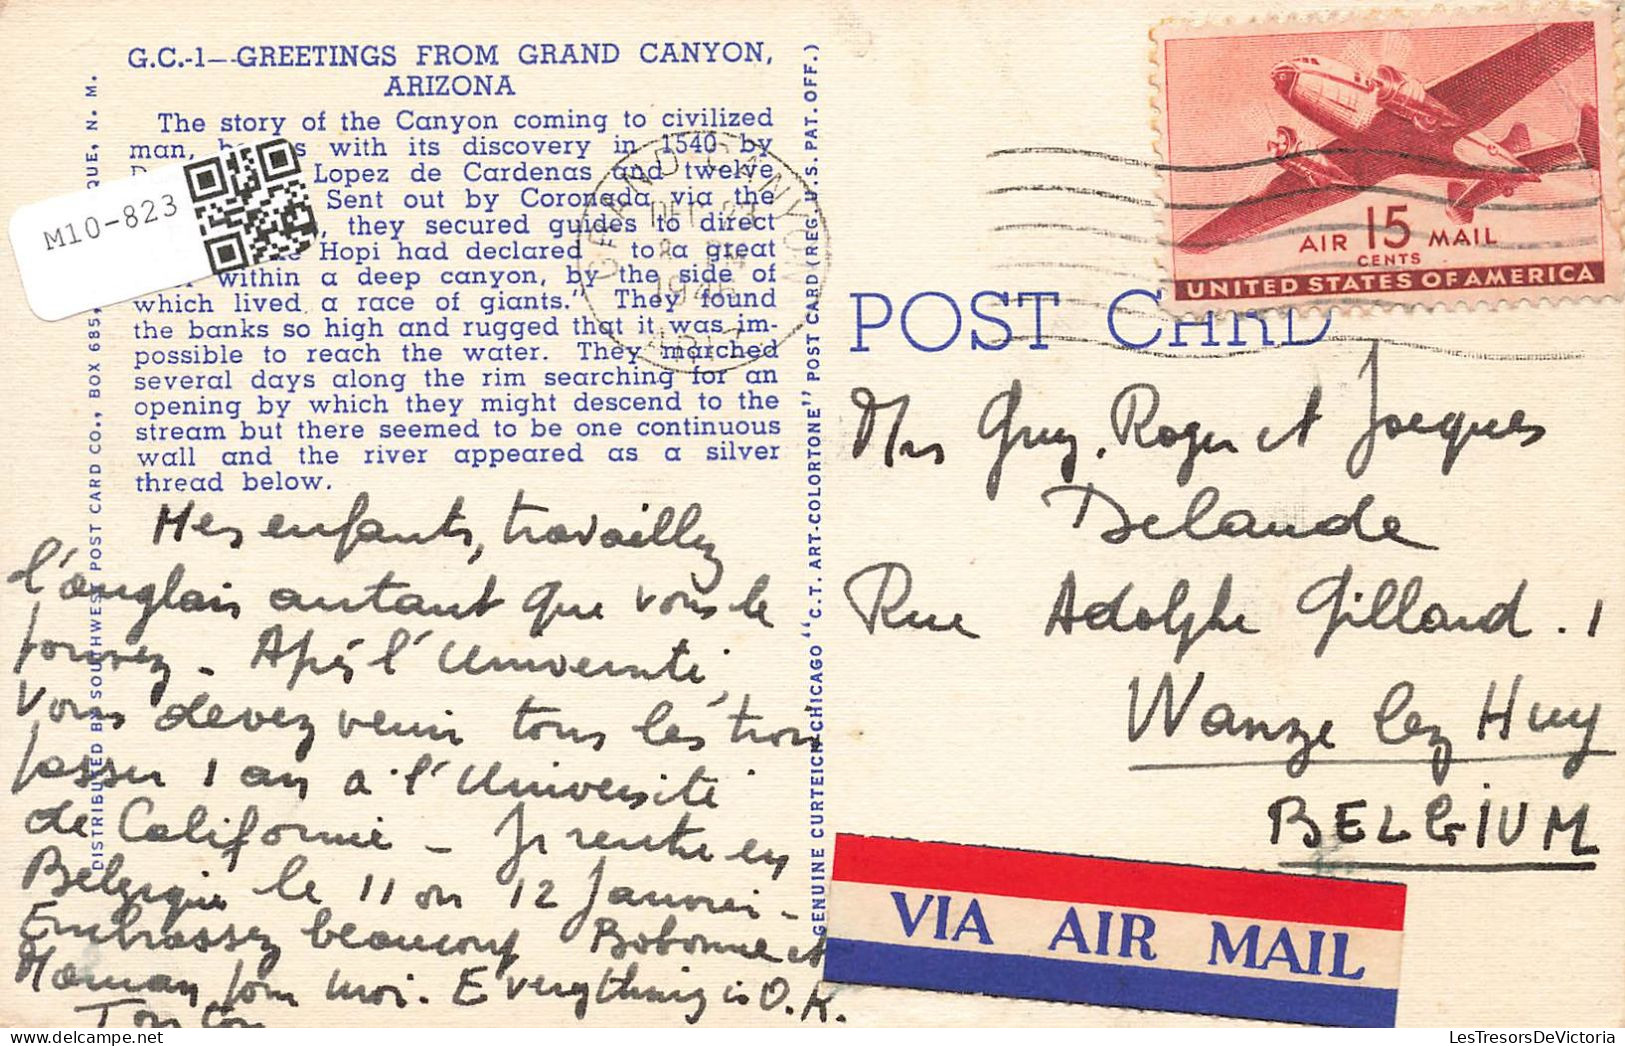 G.C.-1--GREETINGS FROM GRAND CANYON,
ARIZONA
The story of the Canyon coming to civilized
man, with its discovery in 1540 by
Lopez de Cardenas and twelve
Sent out by Coronada via the
they secured guides to direct
Hopi had declared to a great
within a deep canyon, by the side of
which lived a race of giants." They found
the banks so high and rugged that it was im-
possible to reach the water. They marched
several days along the rim searching for an
opening by which they might descend to the
stream but there seemed to be one continuous
wall and the river appeared as a silver
thread below.
M10-823
DISTRIBUTED BY SOUTHWEST POST CARD CO., BOX 685, QUE, N. M.
GENUINE CURTEICH-CHICAGO "C.T. ART-COLORTONE" POST CARD (REG. U.S. PAT. OFF.)
GRAND CANYON
DEC 23
8
1946
ARIZ.
AIR 15 MAIL
CENTS
UNITED STATES OF AMERICA
POST CARD
Mes enfants, travaillez
l'anglais autant que vous le
pouvez - Après l'Université,
vous devez venir tous les trois
passer 1 an à l'Université
de Californie - Je rentre en
Belgique le 11 ou 12 Janvier -
Embrassez beaucoup Bobonne et
Maman pour moi. Everything is O.K.
Ton
Mrs Guy, Roger et Jacques
Delaude
Rue Adolphe Gilland. 1
Wanze lez Huy
BELGIUM
VIA AIR MAIL
LesTresorsDeVictoria.com